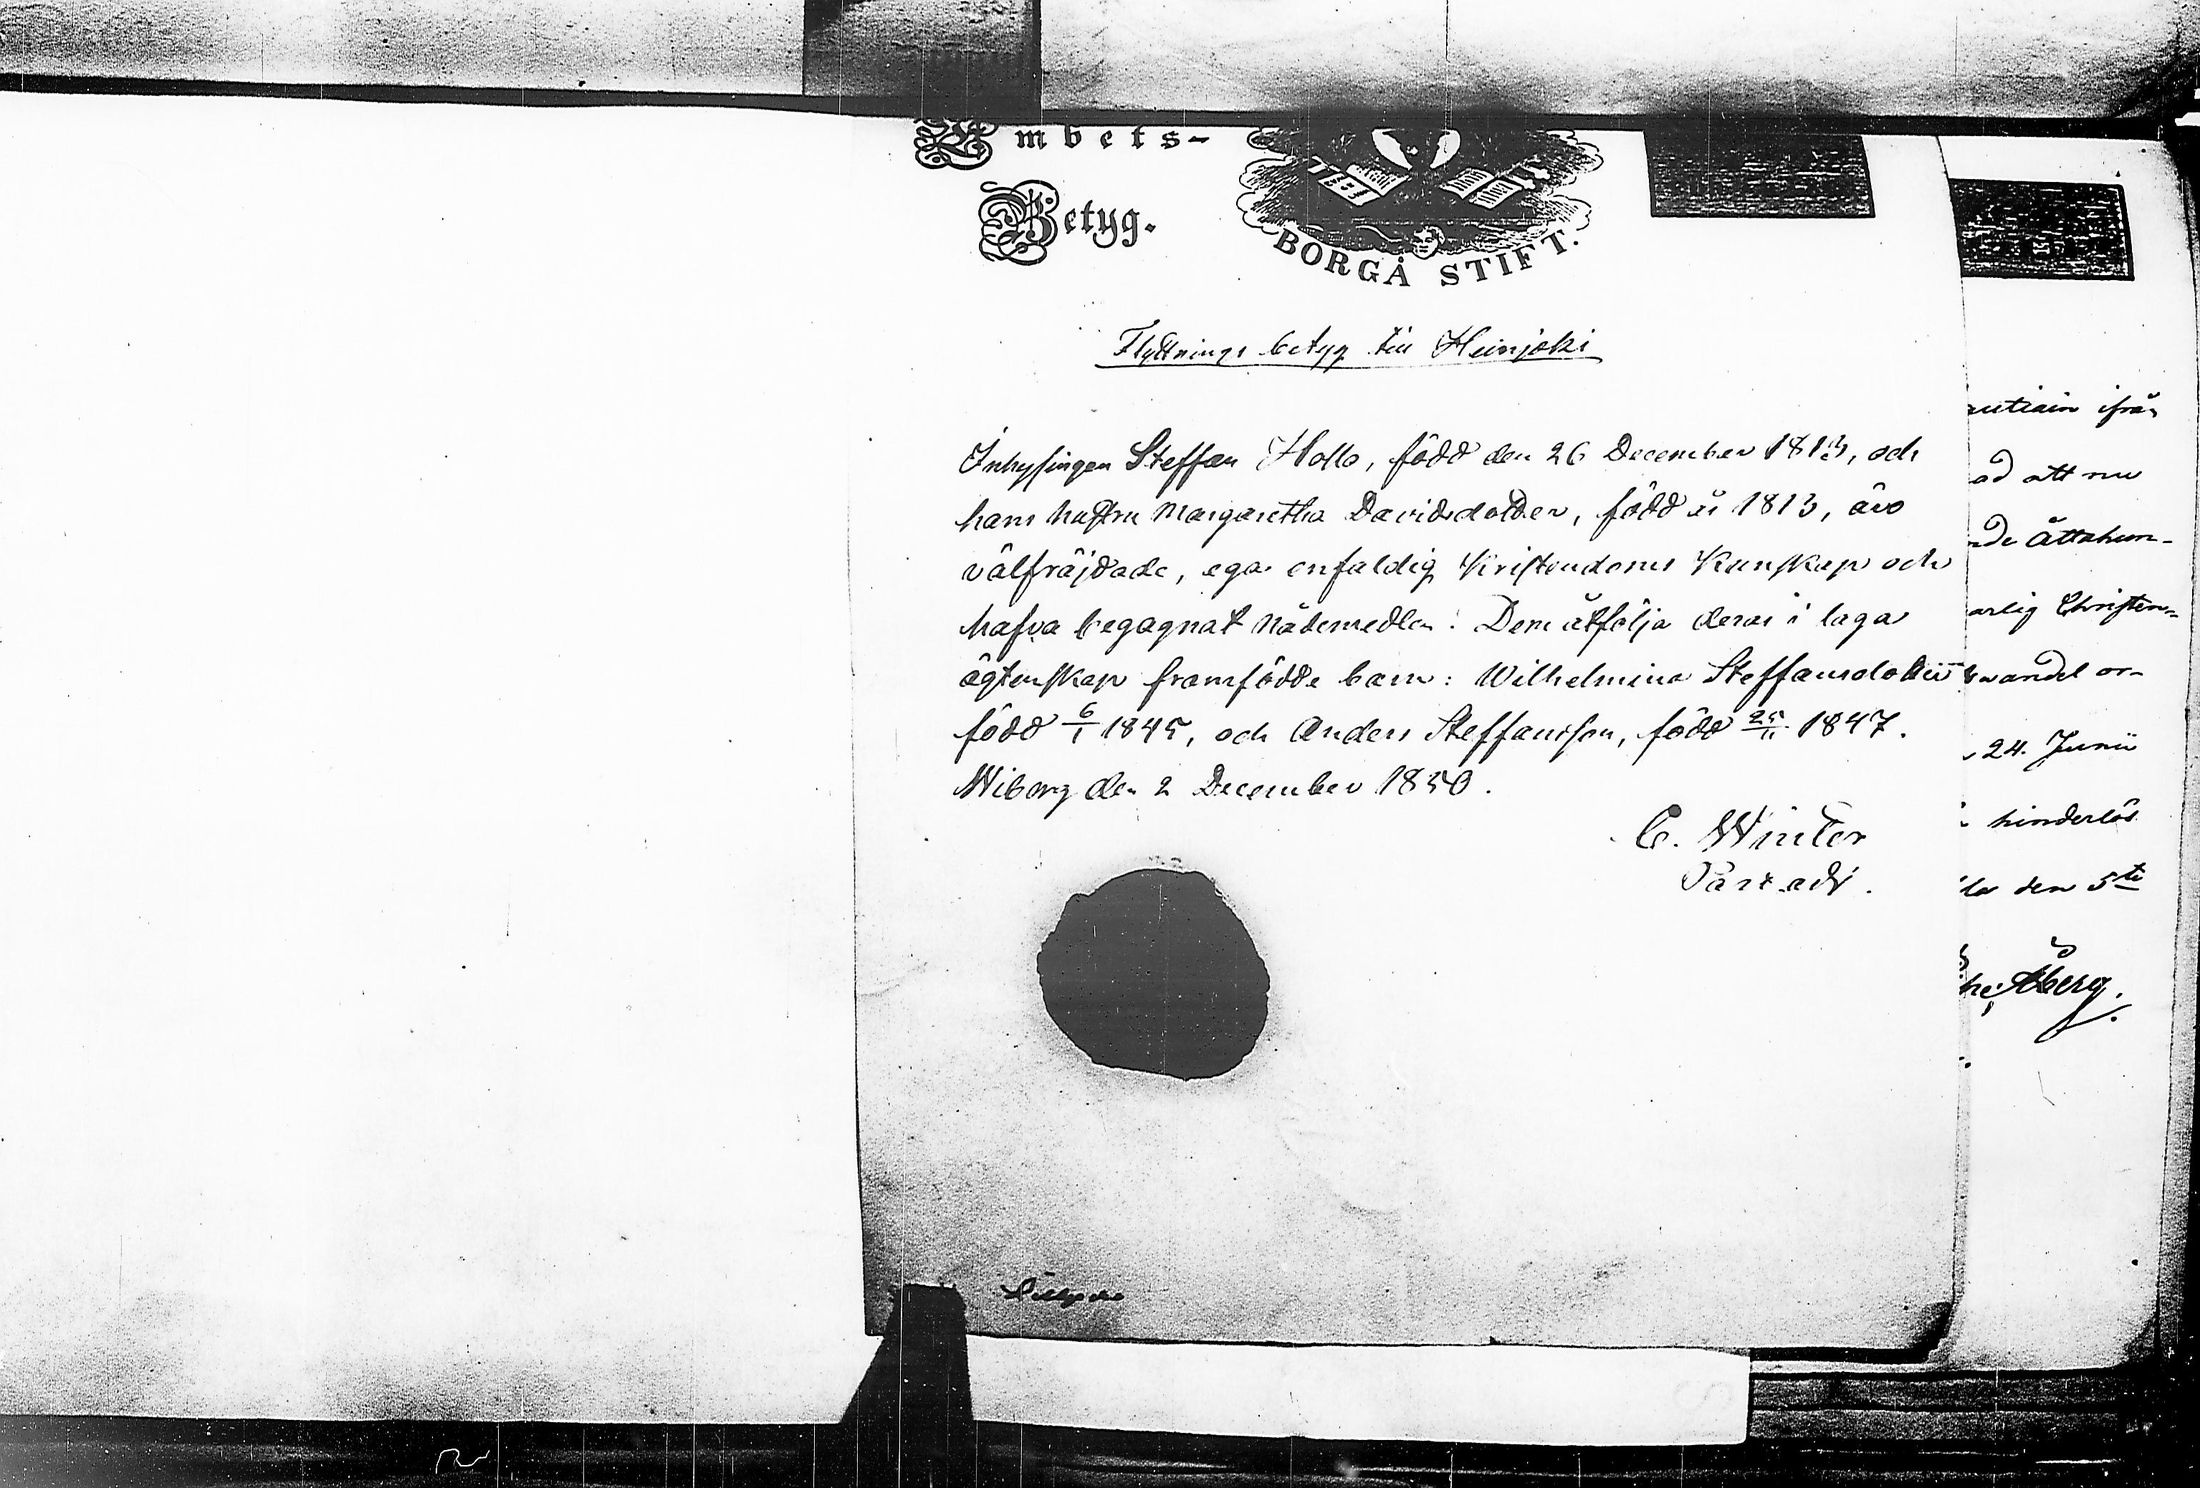 Embets-
Betyg.
BORGÅ STIFT.
Flyttnings betyg till Heinjoki
Inhysingen Steffan Hollo, född den 26 December 1813, och
hans hustru Margaretha Davidsdotter, född år 1813, äro
välfräjdade, ega enfaldig Kristendoms Kunskap och
hafva begagnat nådemedlen. Dem åtfölja deras i laga
ägtenskap framfödde barn: Wilhelmina Steffansdotter
född 6/1 1845, och Anders Steffansson, född 25/11 1847.
Wiborg den 2 December 1850.
C. Winter
Past. adj.
ifrån
ad att nu
nde åttahun-
arlig Christen-
wandel or-
24. Junii
hinderlös
den 5te
Åberg.